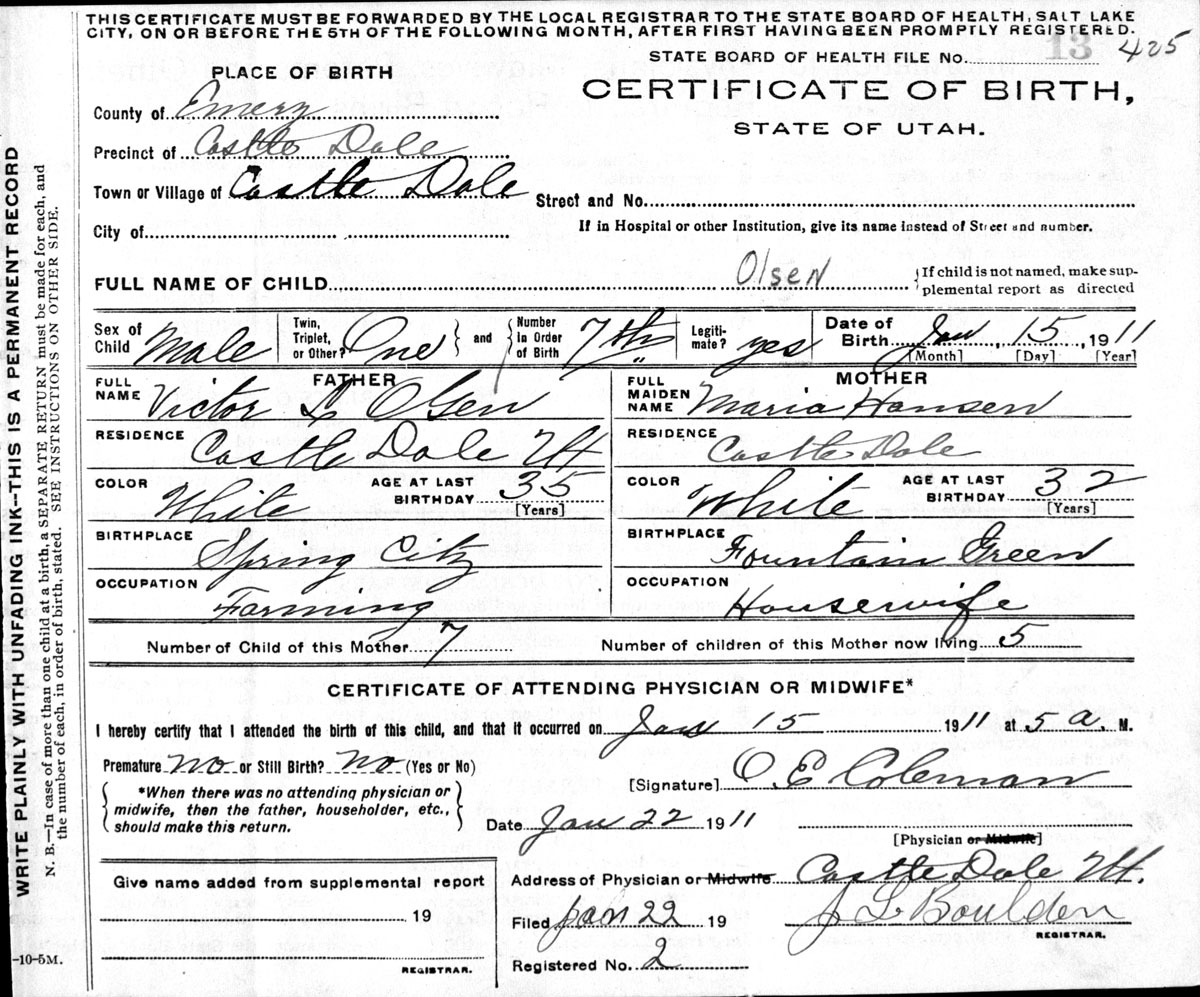 THIS CERTIFICATE MUST BE FORWARDED BY THE LOCAL REGISTRAR TO THE STATE BOARD OF HEALTH, SALT LAKE
CITY, ON OR BEFORE THE 5TH OF THE FOLLOWING MONTH, AFTER FIRST HAVING BEEN PROMPTLY REGISTERED.
STATE BOARD OF HEALTH FILE No. 13 425
PLACE OF BIRTH
CERTIFICATE OF BIRTH,
STATE OF UTAH.
County of Emery
Precinct of Castle Dale
Town or Village of Castle Dale
Street and No.
City of
If in Hospital or other Institution, give its name instead of Street and number.
FULL NAME OF CHILD Olsen {If child is not named, make sup-
plemental report as directed
Sex of Child Male Twin, Triplet, or Other? One } and { Number In Order of Birth 7th Legiti-mate? yes Date of Birth Jan 15, 1911
[Month] [Day] [Year]
FATHER
FULL NAME Victor L Olsen
RESIDENCE Castle Dale Ut
COLOR White AGE AT LAST BIRTHDAY 35 [Years]
BIRTHPLACE Spring City
OCCUPATION Farming
MOTHER
FULL MAIDEN NAME Maria Hansen
RESIDENCE Castle Dale
COLOR White AGE AT LAST BIRTHDAY 32 [Years]
BIRTHPLACE Fountain Green
OCCUPATION Housewife
Number of Child of this Mother 7 Number of children of this Mother now living 5
CERTIFICATE OF ATTENDING PHYSICIAN OR MIDWIFE*
I hereby certify that I attended the birth of this child, and that it occurred on Jan 15 1911 at 5 a. M.
Premature No or Still Birth? No (Yes or No)
[Signature] O E Coleman
*When there was no attending physician or
midwife, then the father, householder, etc.,
should make this return.
Date Jan 22 1911
[Physician or Midwife]
Give name added from supplemental report
19
REGISTRAR.
Address of Physician or Midwife Castle Dale Ut.
Filed Jan 22 19 J L Boulden
REGISTRAR.
Registered No. 2
-10-5M.
WRITE PLAINLY WITH UNFADING INK--THIS IS A PERMANENT RECORD
N. B.—In case of more than one child at a birth, a SEPARATE RETURN must be made for each, and
the number of each, in order of birth, stated. SEE INSTRUCTIONS ON OTHER SIDE.